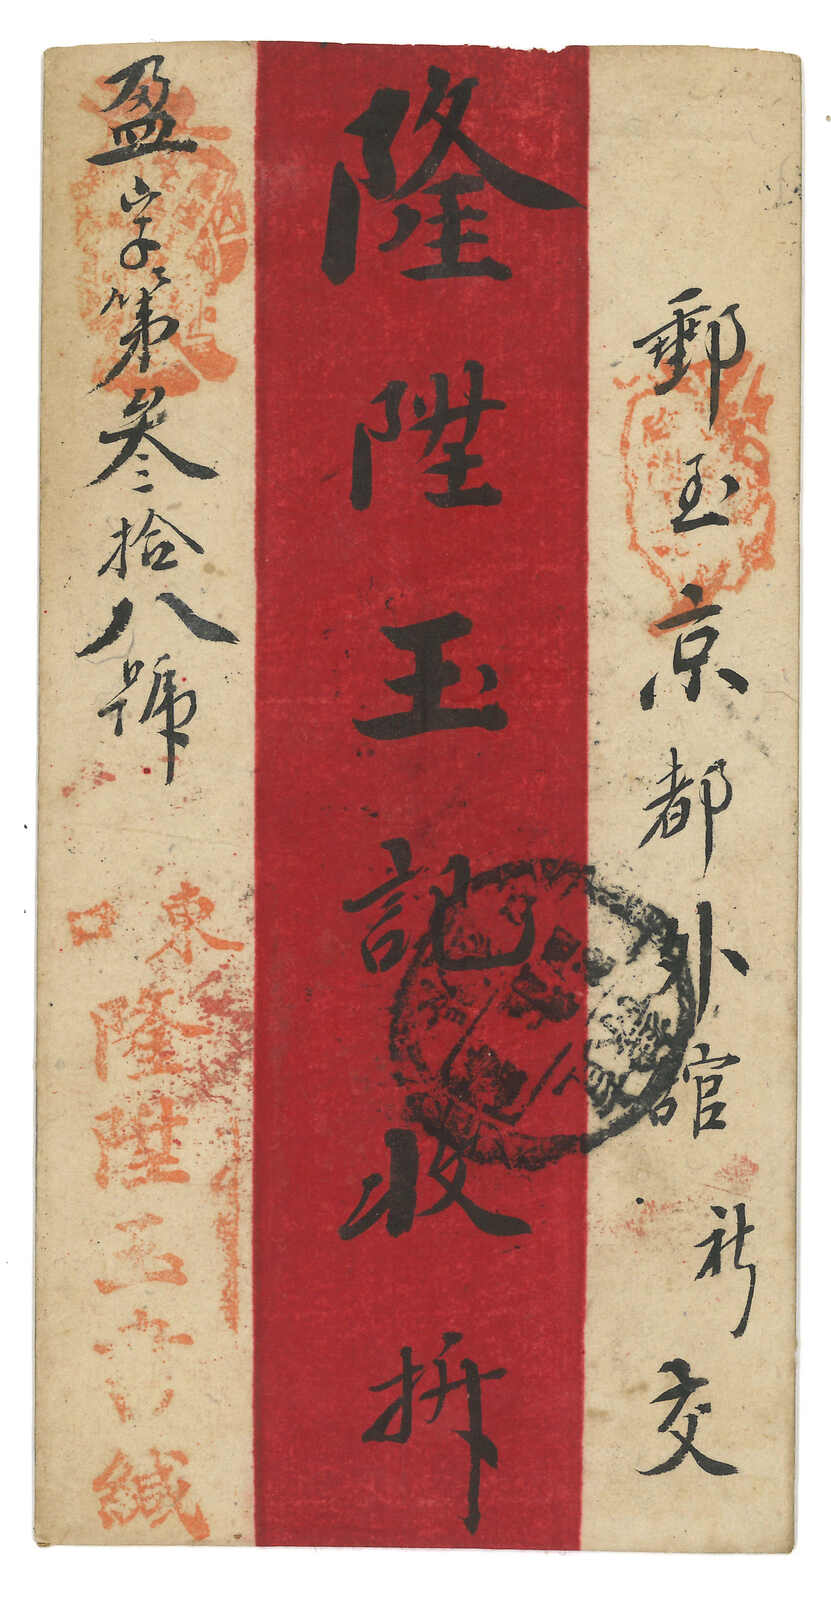 郵至京都外舘祈交
隆陞玉記收拆
盈字第叁拾八號
東口
隆陞玉
緘